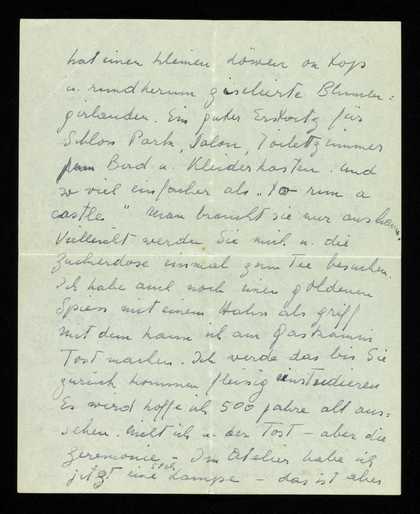 hat einen kleinen Löwen on Kopf
u. rundherum ziselierte Blumen=
girlanden. Ein guter Ersatz für
Schloss Park, Salon, Toilettzimmer
Bad u. Kleiderkasten. und
so viel einfacher als "to run a
castle" man braucht sie nur anschauen.
Vielleicht werden Sie mich u. die
Zuckerdose einmal zum Tee besuchen.
Ich habe auch noch einen goldenen
Spiess mit einem Hahn als griff
mit dem kann ich am Gaskamin
Tost machen. Ich werde das bis Sie
zurück kommen fleissig einstudieren
Es wird hoffe ich 500 Jahre alt aus=
sehen. nicht ich u. der Tost – aber die
Zeremonie – Im Atelier habe ich
jetzt eine Lampe – das ist aber